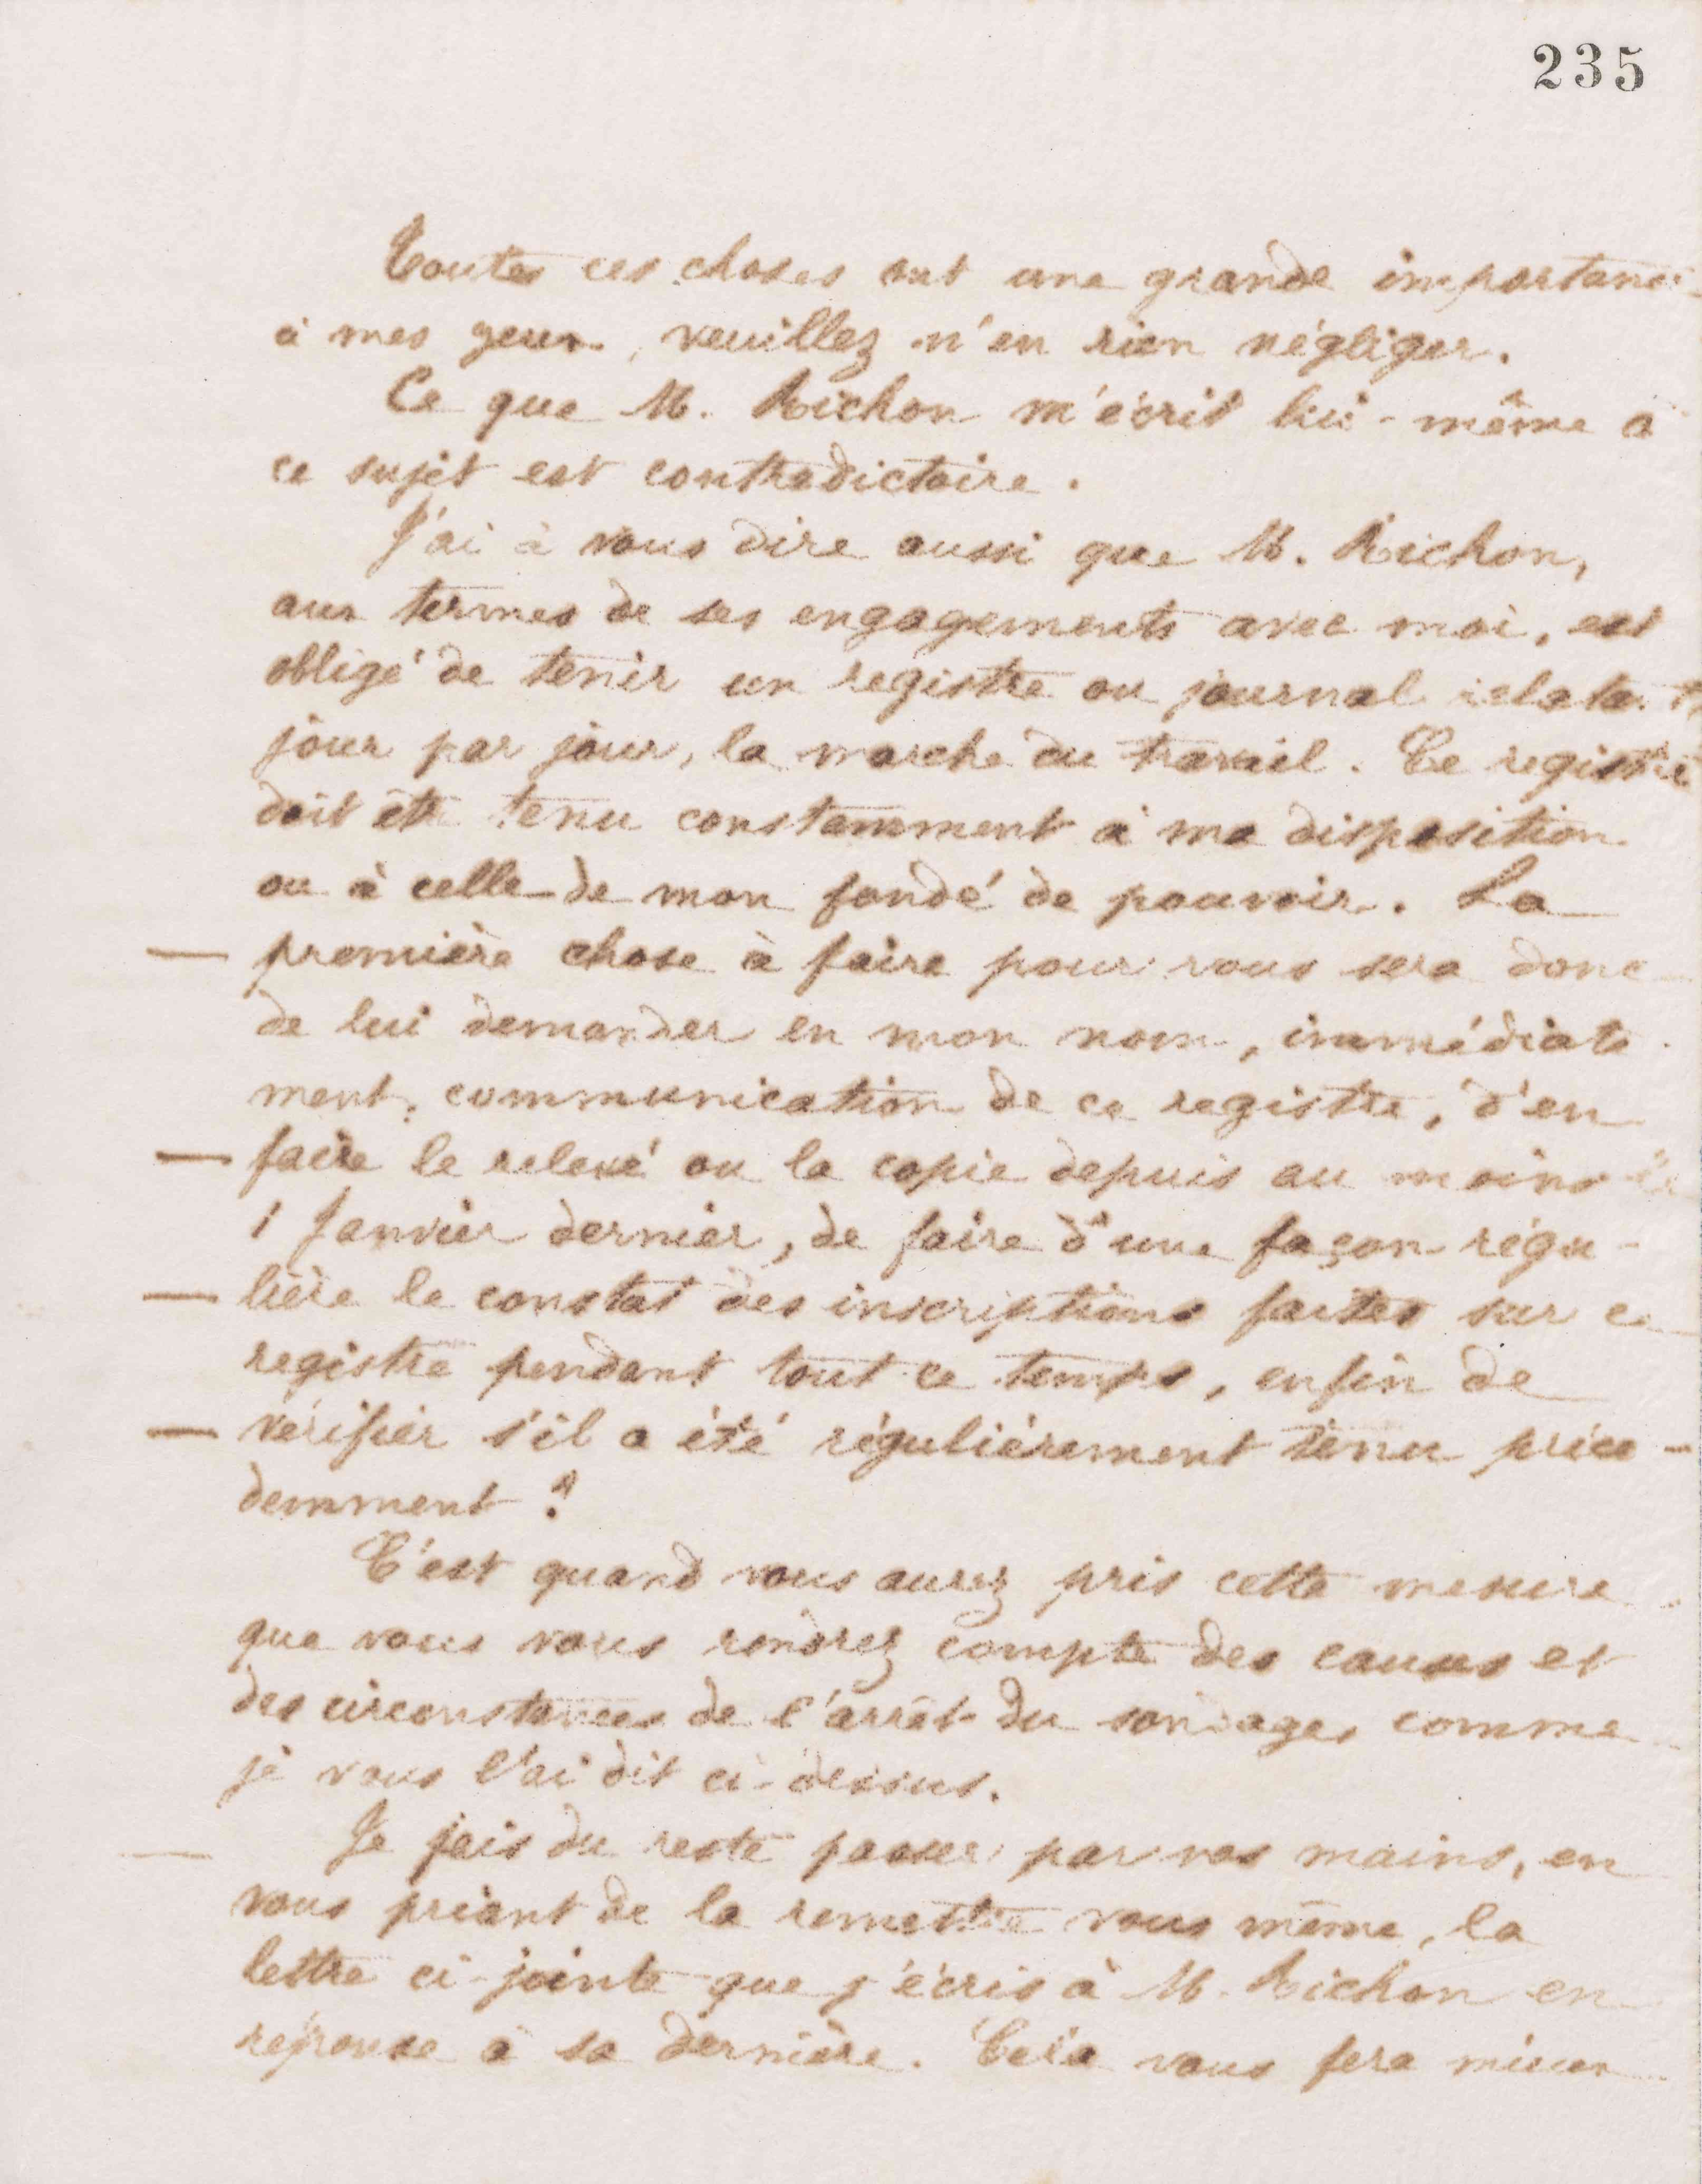 235
Toutes ces choses ont une grande importance
à mes yeux, veuillez n'en rien négliger.
Ce que M. Richon m'écrit lui-même à
ce sujet est contradictoire.
J'ai à vous dire aussi que M. Richon,
aux termes de ses engagements avec moi, est
obligé de tenir un registre ou journal relatant,
jour par jour, la marche du travail. Ce registre
doit être tenu constamment à ma disposition
ou à celle de mon fondé de pouvoir. La
— première chose à faire pour vous sera donc
de lui demander en mon nom, immédiate-
ment, communication de ce registre, d'en
— faire le relevé ou la copie depuis au moins le
1 Janvier dernier, de faire d'une façon régu-
— lière le constat des inscriptions faites sur ce
registre pendant tout ce temps, enfin de
— vérifier s'il a été régulièrement tenu précé-
demment ?
C'est quand vous aurez pris cette mesure
que vous vous rendrez compte des causes et
des circonstances de l'arrêt du sondage, comme
je vous l'ai dit ci-dessus.
— Je fais du reste passer par vos mains, en
vous priant de la remettre vous même, la
lettre ci-jointe que j'écris à M. Richon en
réponse à sa dernière. Cela vous fera mieux